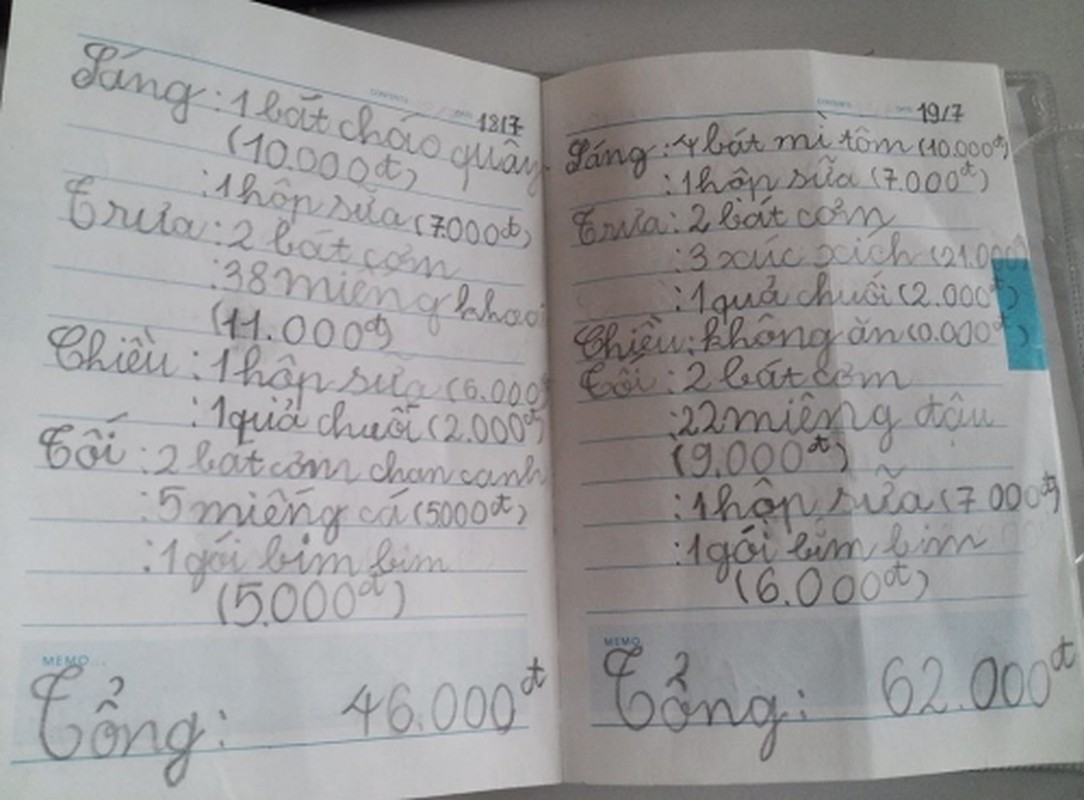 CONTENTS DATE 18/7
Sáng : 1 bát cháo quẩy
(10.000đ)
: 1 hộp sữa (7.000đ)
Trưa : 2 bát cơm
: 38 miếng khoai
(11.000đ)
Chiều : 1 hộp sữa (6.000đ)
: 1 quả chuối (2.000đ)
Tối : 2 bát cơm chan canh
: 5 miếng cá (5000đ)
: 1 gói bim bim
(5.000đ)
MEMO
Tổng : 46.000đ
CONTENTS DATE 19/7
Sáng : 1 bát mì tôm (10.000đ)
: 1 hộp sữa (7.000đ)
Trưa : 2 bát cơm
: 3 xúc xích (21.000)
: 1 quả chuối (2.000đ)
Chiều : không ăn (0.000đ)
Tối : 2 bát cơm
: 22 miếng đậu
(9.000đ)
: 1 hộp sữa (7.000đ)
: 1 gói bim bim
(6.000đ)
MEMO
Tổng : 62.000đ